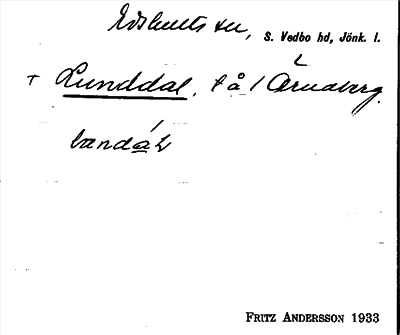 Edshults sn, S. Vedbo hd, Jönk. l.
T Lunddal, t å / Arnaberg
lændáL
FRITZ ANDERSSON 1933